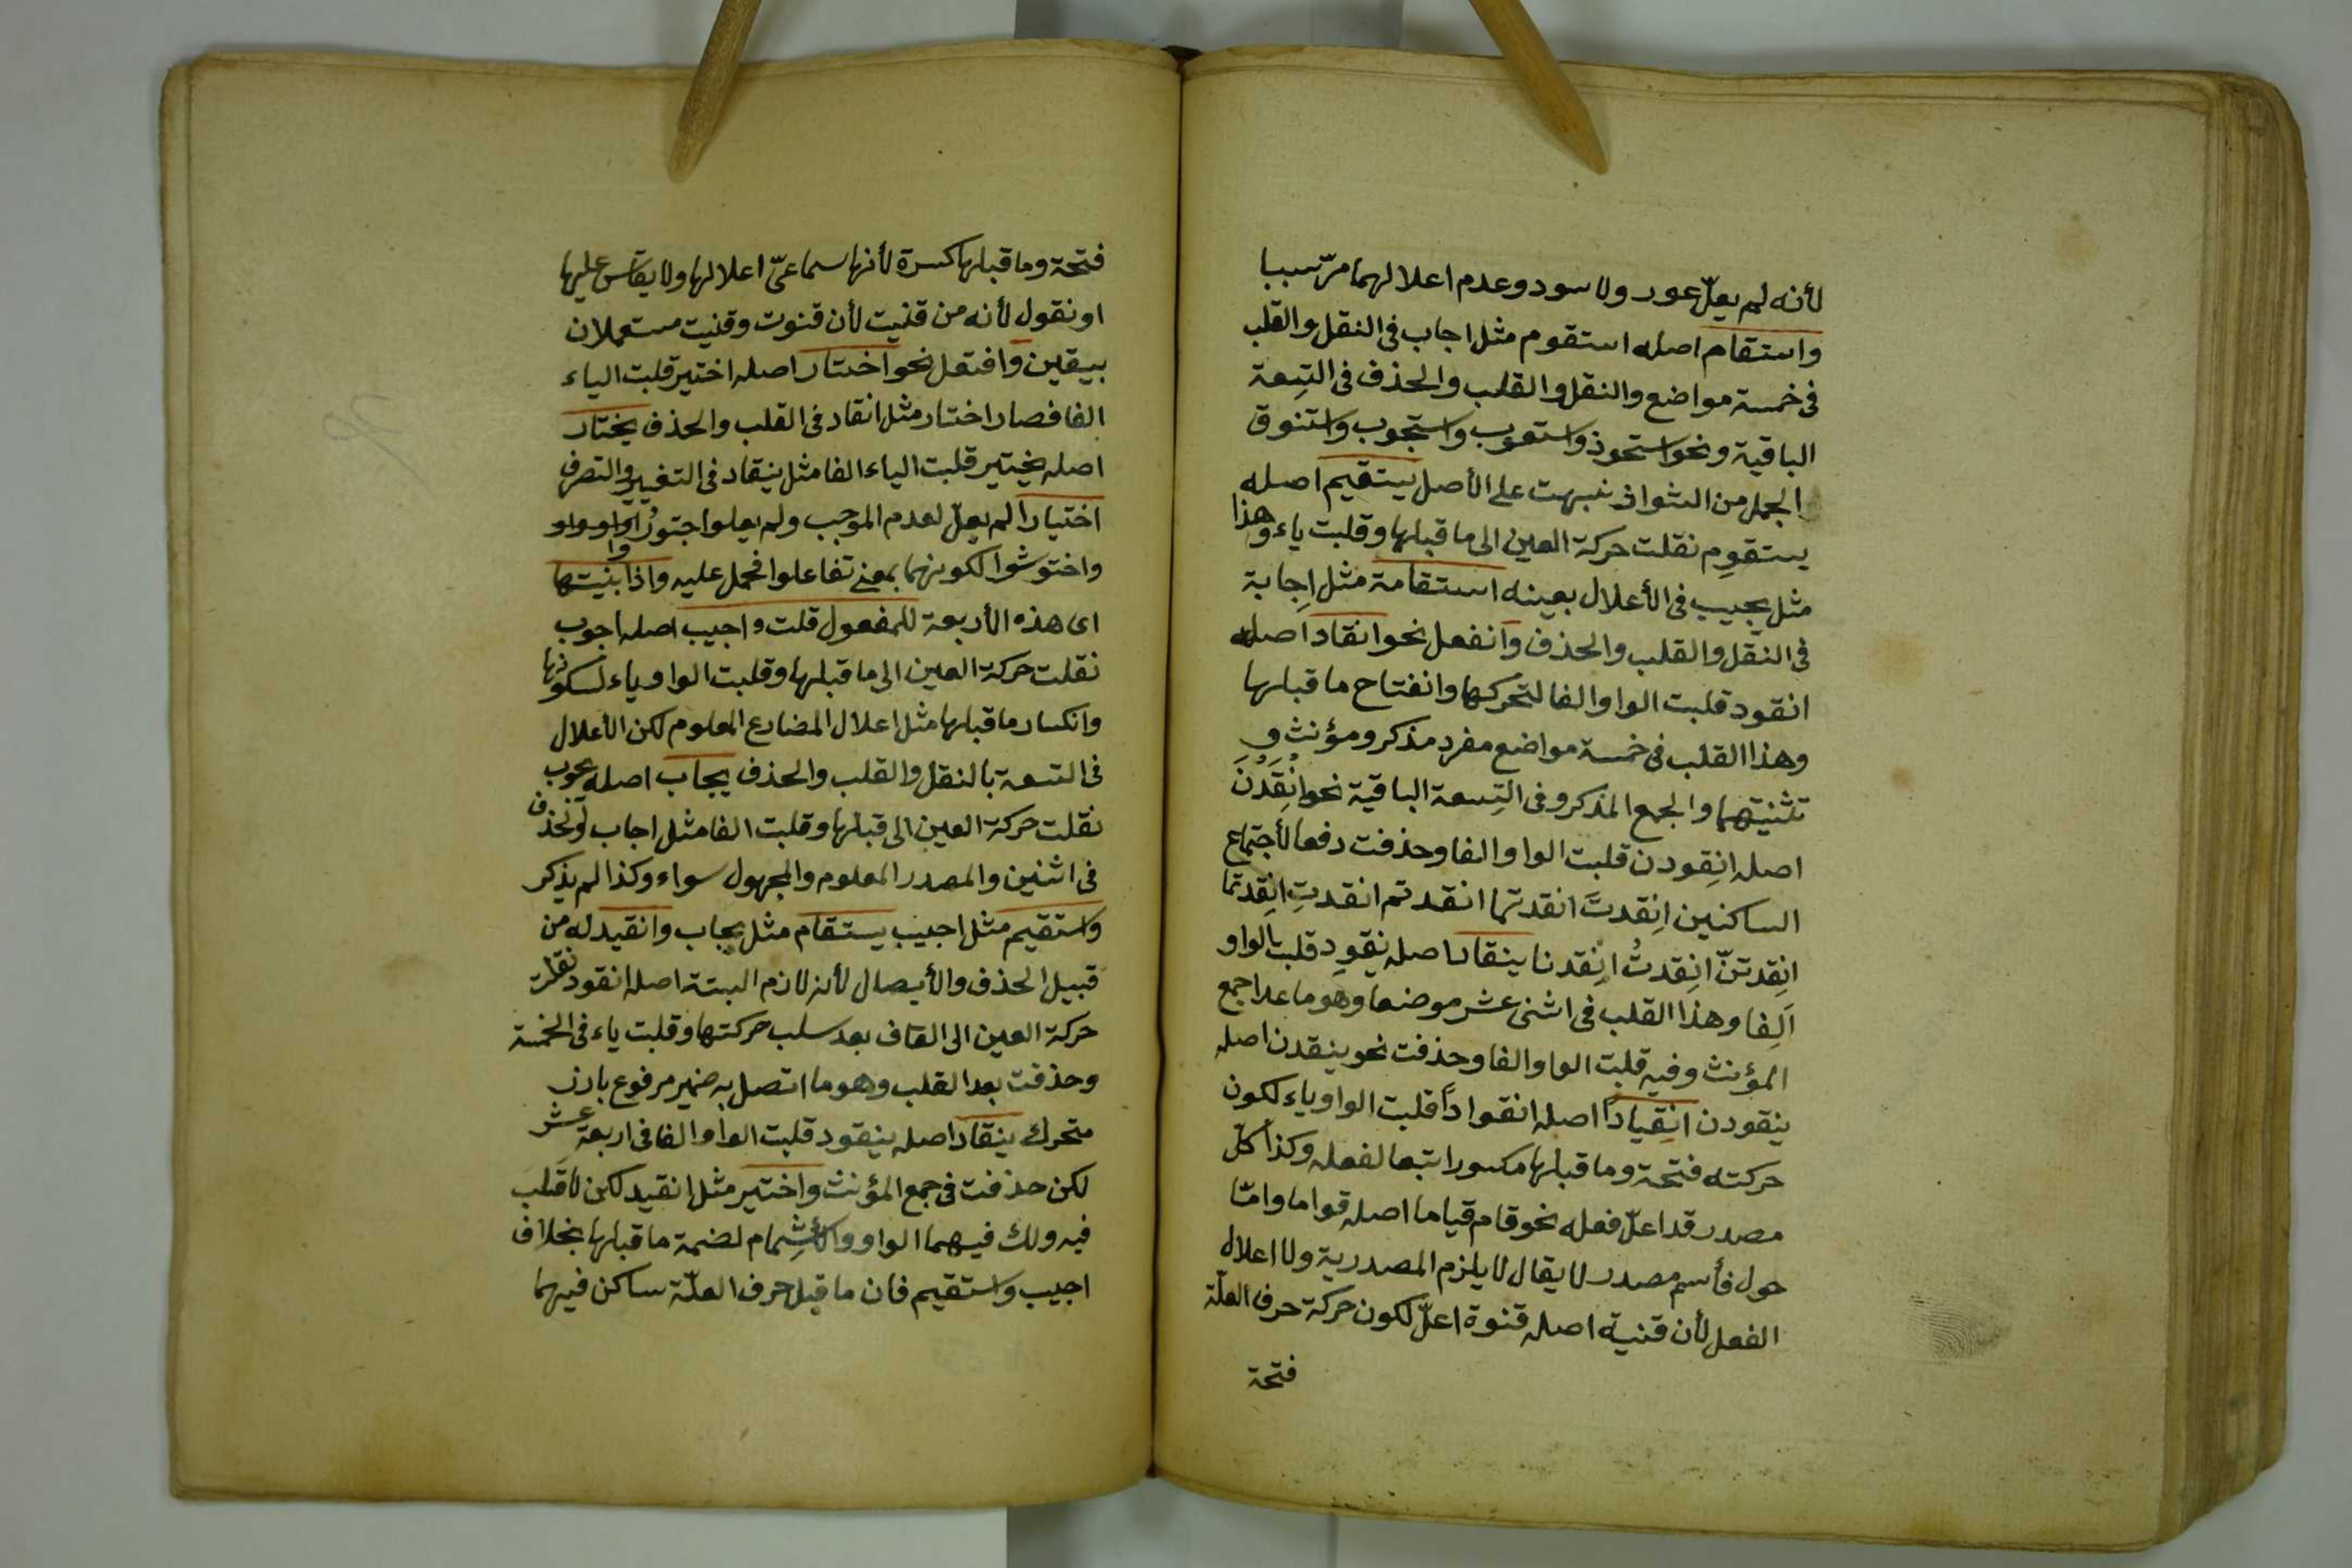 لأنه لم يعلّ عور ولا سود وعدم اعلالهما مرّ سببا
واستقام اصله استقوم مثل اجاب فى النقل والقلب
فى خمسة مواضع والنقل والقلب والحذف فى التِسعة
الباقية ونحو استحوذ واستصوب واستجوب واستنوق
الجمل من الشواذ نبهت على الأصل يستقيم اصله
يستقوِم نقلت حركة العين الى ما قبلها وقلبت ياء وهذا
مثل يجيب فى الأعلال بعينه استقامة مثل اِجابة
فى النقل والقلب والحذف وانفعل نحو انقاد اصله
انقود قلبت الواو الفا لتحركها وانفتاح ما قبلها
وهذا القلب فى خمسة مواضع مفرد مذكر ومؤنث و
تثنيتهما والجمع المذكر وفى التِسعة الباقية نحو اِنقَدْنَ
اصله اِنقودن قلبت الواو الفا وحذفت دفعا لأجتماع
الساكنين اِنقدتَ انقدتما انقدتم انقدتِ اِنقدتما
اِنقِدتنّ اِنقدتُ اِنقدنا ينقاد اصله ينقوِد قلبت الواو
اَلِفا وهذا القلب فى اثنى عشر موضعا وهو ما عدا جمع
المؤنث وفيه قلبت الواو الفا وحذفت نحو ينقدن اصله
ينقودن اِنقِياداً اصله انقواداً قلبت الواو ياء لكون
حركته فتحة وما قبلها مكسورا تبعا لفعله وكذا كلّ
مصدر قد اعلّ فعله نحو قام قياما اصله قواما وامّا
حول فأسم مصدر لا يقال لا يلزم المصدرية ولا اعلال
الفعل لأن قنية اصله قنوة اعلّ لكون حركة حرف العلّة
فتحة
فتحة وما قبلها كسرة لأنها سماعىّ اعلالها ولا يقاس عليها
او نقول لأنه من قنيت لأن قنوت وقنيت مستعملان
بيقين وافتعل نحو اختار اصله اختير قلبت الياء
الفا فصار اختار مثل انقاد فى القلب والحذف يختار
اصله يختير قلبت الياء الفا مثل ينقاد فى التغيير والتصرف
اختيارا لم يعلّ لعدم الموجب ولم يعلوا اجتوروا
واختوشوا لكونهما بمعنى تفاعلوا فحمل عليه واذا بنيتها
اى هذه الأربعة للمفعول قلت واجيب اصله اجوب
نقلت حركة العين الى ما قبلها وقلبت الواو ياء لسكونها
وانكسار ما قبلها مثل اعلال المضارع المعلوم لكن الأعلال
فى التسعة بالنقل والقلب والحذف يجاب اصله يجوب
نقلت حركة العين الى قبلها وقلبت الفا مثل اجاب لو تحذف
فى اثنين والمصدر المعلوم والمجهول سواء وكذا لم يذكر
واستقيم مثل اجيب يستقام مثل يجاب وانقيد له من
قبيل الحذف والأيصال لأنه لازم البتة اصله انقود نقلت
حركة العين الى القاف بعد سلب حركتها وقلبت ياء فى الخمسة
وحذفت بعد القلب وهو ما اتصل به ضمير مرفوع بارز
متحرك ينقاد اصله ينقود قلبت الواو الفا فى اربعة عشر
لكن حذفت فى جمع المؤنث واختير مثل انقيد لكن لا قلب
فيه ولك فيهما الواو والأشمام لضمة ما قبلها بخلاف
اجيب واستقيم فان ما قبل حرف العلّة ساكن فيهما